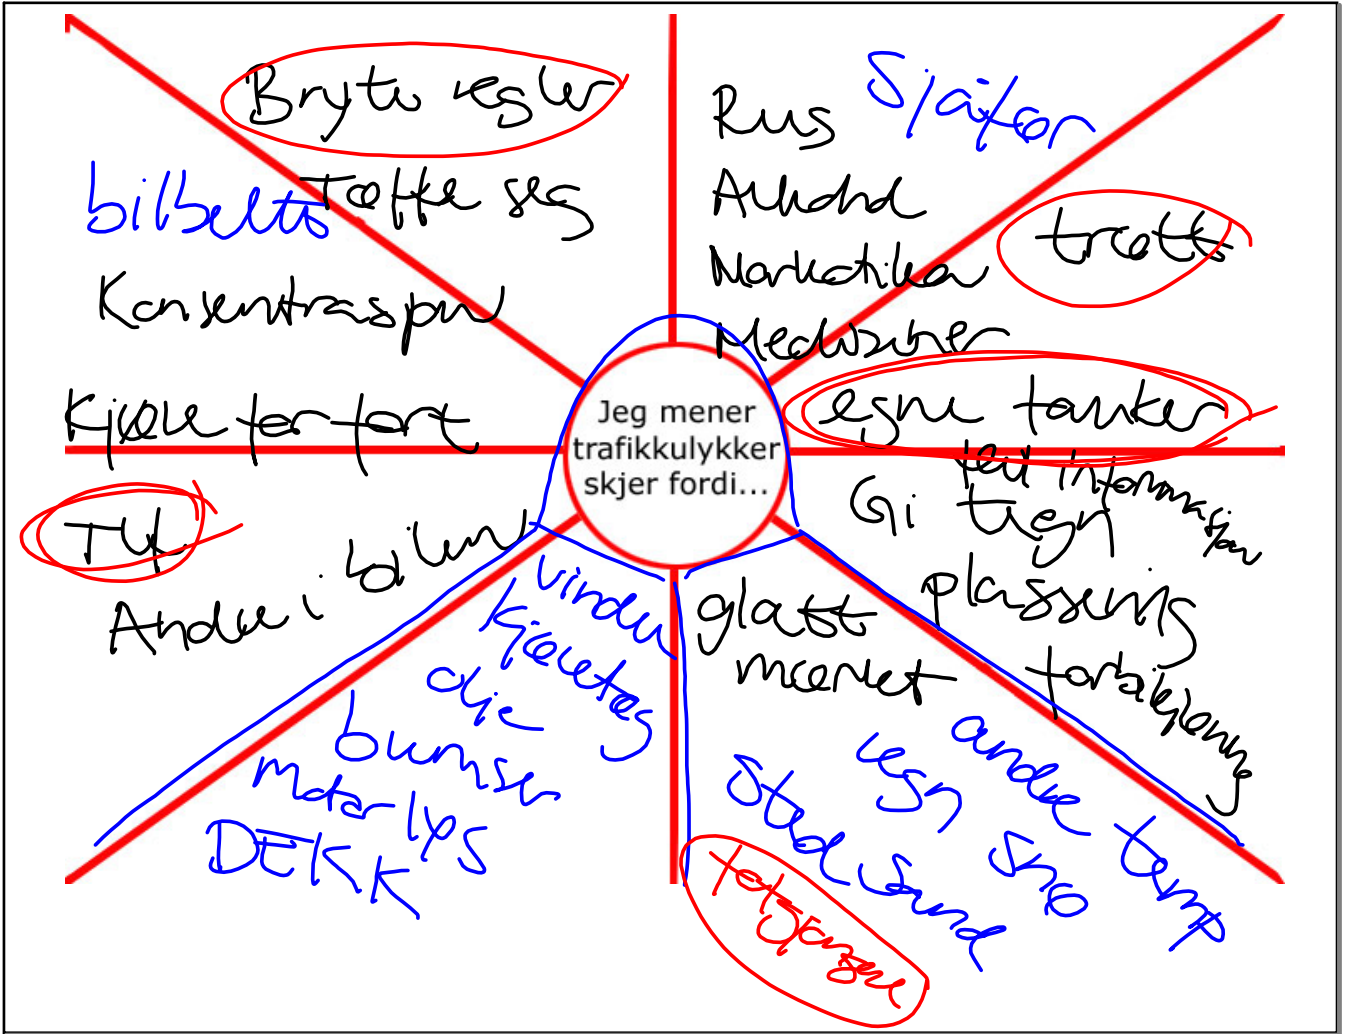 Bryte regler
bilbelte
Tøffe seg
Konsentrasjon
Kjøre for fort
Tlf
Andre i bilen
Rus
Sjåfør
Alkohol
Narkotika
Medisiner
trøtt
egne tanker
Jeg mener
trafikkulykker
skjer fordi...
feil informasjon
Gi tegn
plassering
forbikjøring
vindu
kjøretøy
olje
bremser
motor lys
DEKK
glatt
mørket
andre
regn
snø
temp
sted
sand
fotgjengere